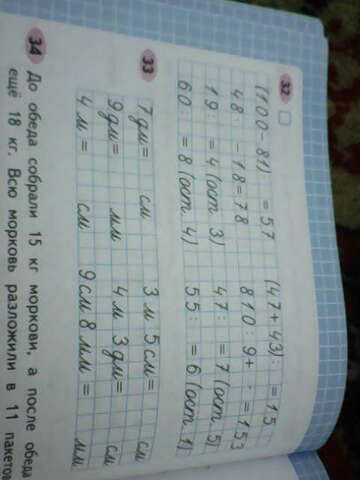 32
(100-81) = 57 (47+43): = 15
48 · - 18 = 78 810 : 9 + · = 153
19 : = 4 (ост. 3) 47 : = 7 (ост. 5)
60 : = 8 (ост. 4) 55 : = 6 (ост. 1)
33
7 дм = см 3 м 5 см = см
9 дм = мм 4 м 3 дм = см
4 м = см 9 см 8 мм = мм
34 До обеда собрали 15 кг моркови, а после обеда
ещё 18 кг. Всю морковь разложили в 11 пакетов